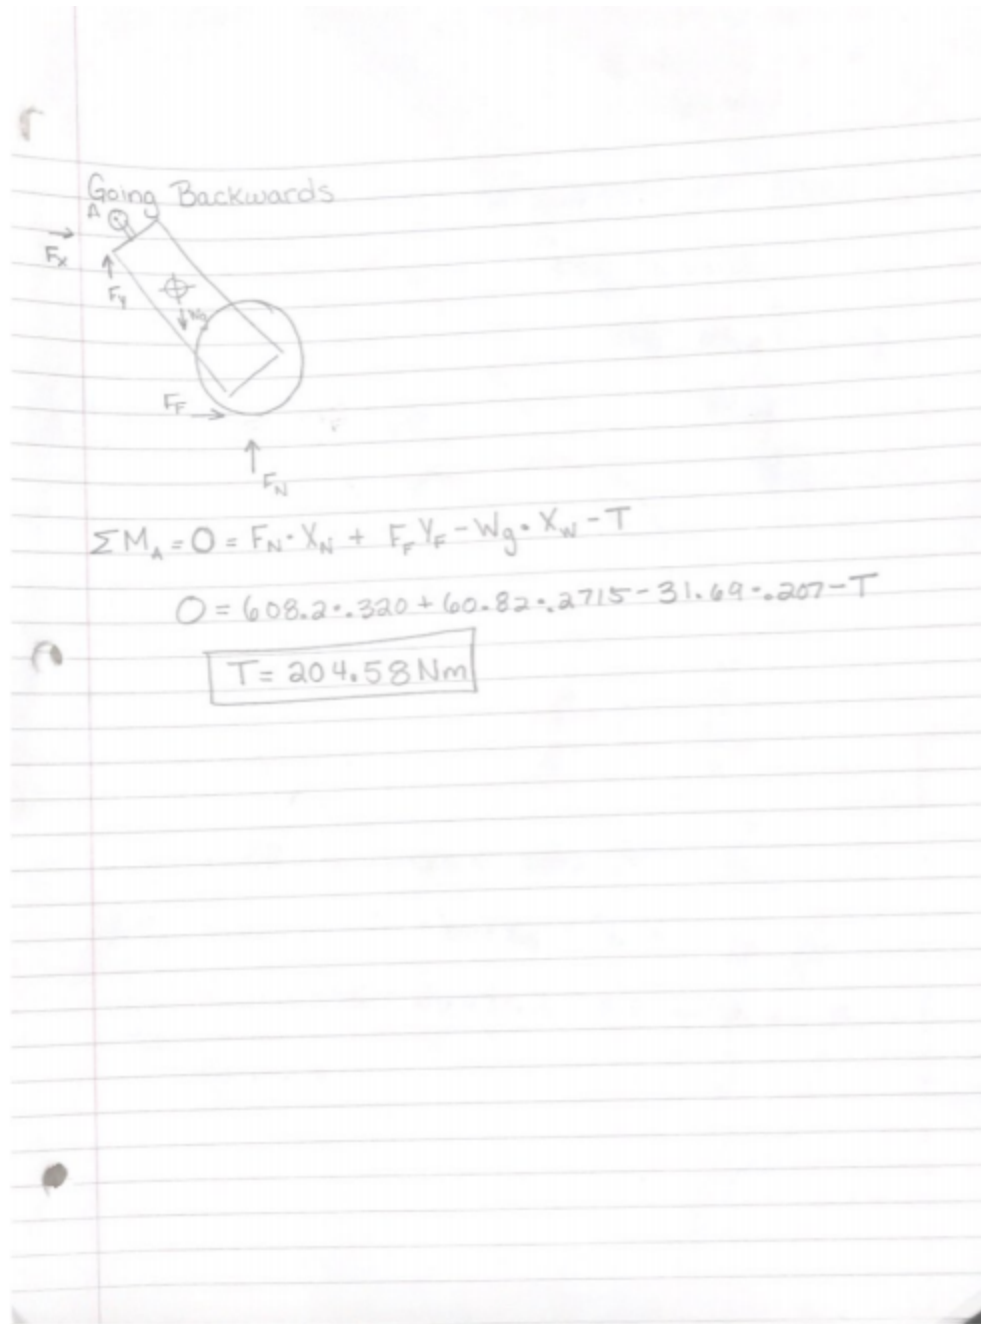 Going Backwards
A
Fx
Fy
Wg
FF
FN
ΣM_A = 0 = F_N · X_N + F_F Y_F - Wg · X_W - T
0 = 608.2 · .320 + 60.82 · .2715 - 31.69 · .207 - T
T = 204.58 Nm